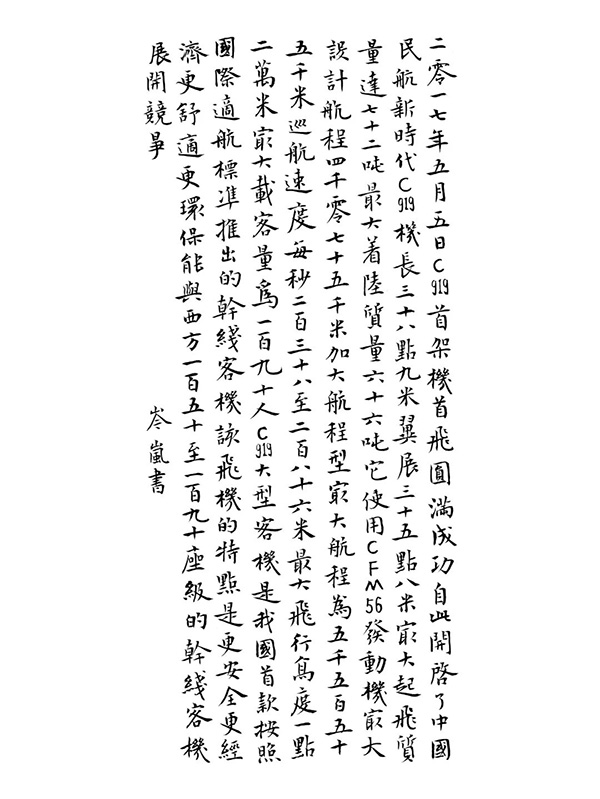 二零一七年五月五日C919首架機首飛圓滿成功自此開啓了中國
民航新時代C919機長三十八點九米翼展三十五點八米最大起飛質
量達七十二吨最大着陸質量六十六吨它使用CFM56發動機最大
設計航程四千零七十五千米加大航程型最大航程為五千五百五十
五千米巡航速度每秒二百三十八至二百八十六米最大飛行高度一點
二萬米最大載客量爲一百九十人C919大型客機是我國首款按照
國際適航標準推出的幹綫客機該飛機的特點是更安全更經
濟更舒適更環保能與西方一百五十至一百九十座級的幹綫客機
展開競爭
岑嵐書